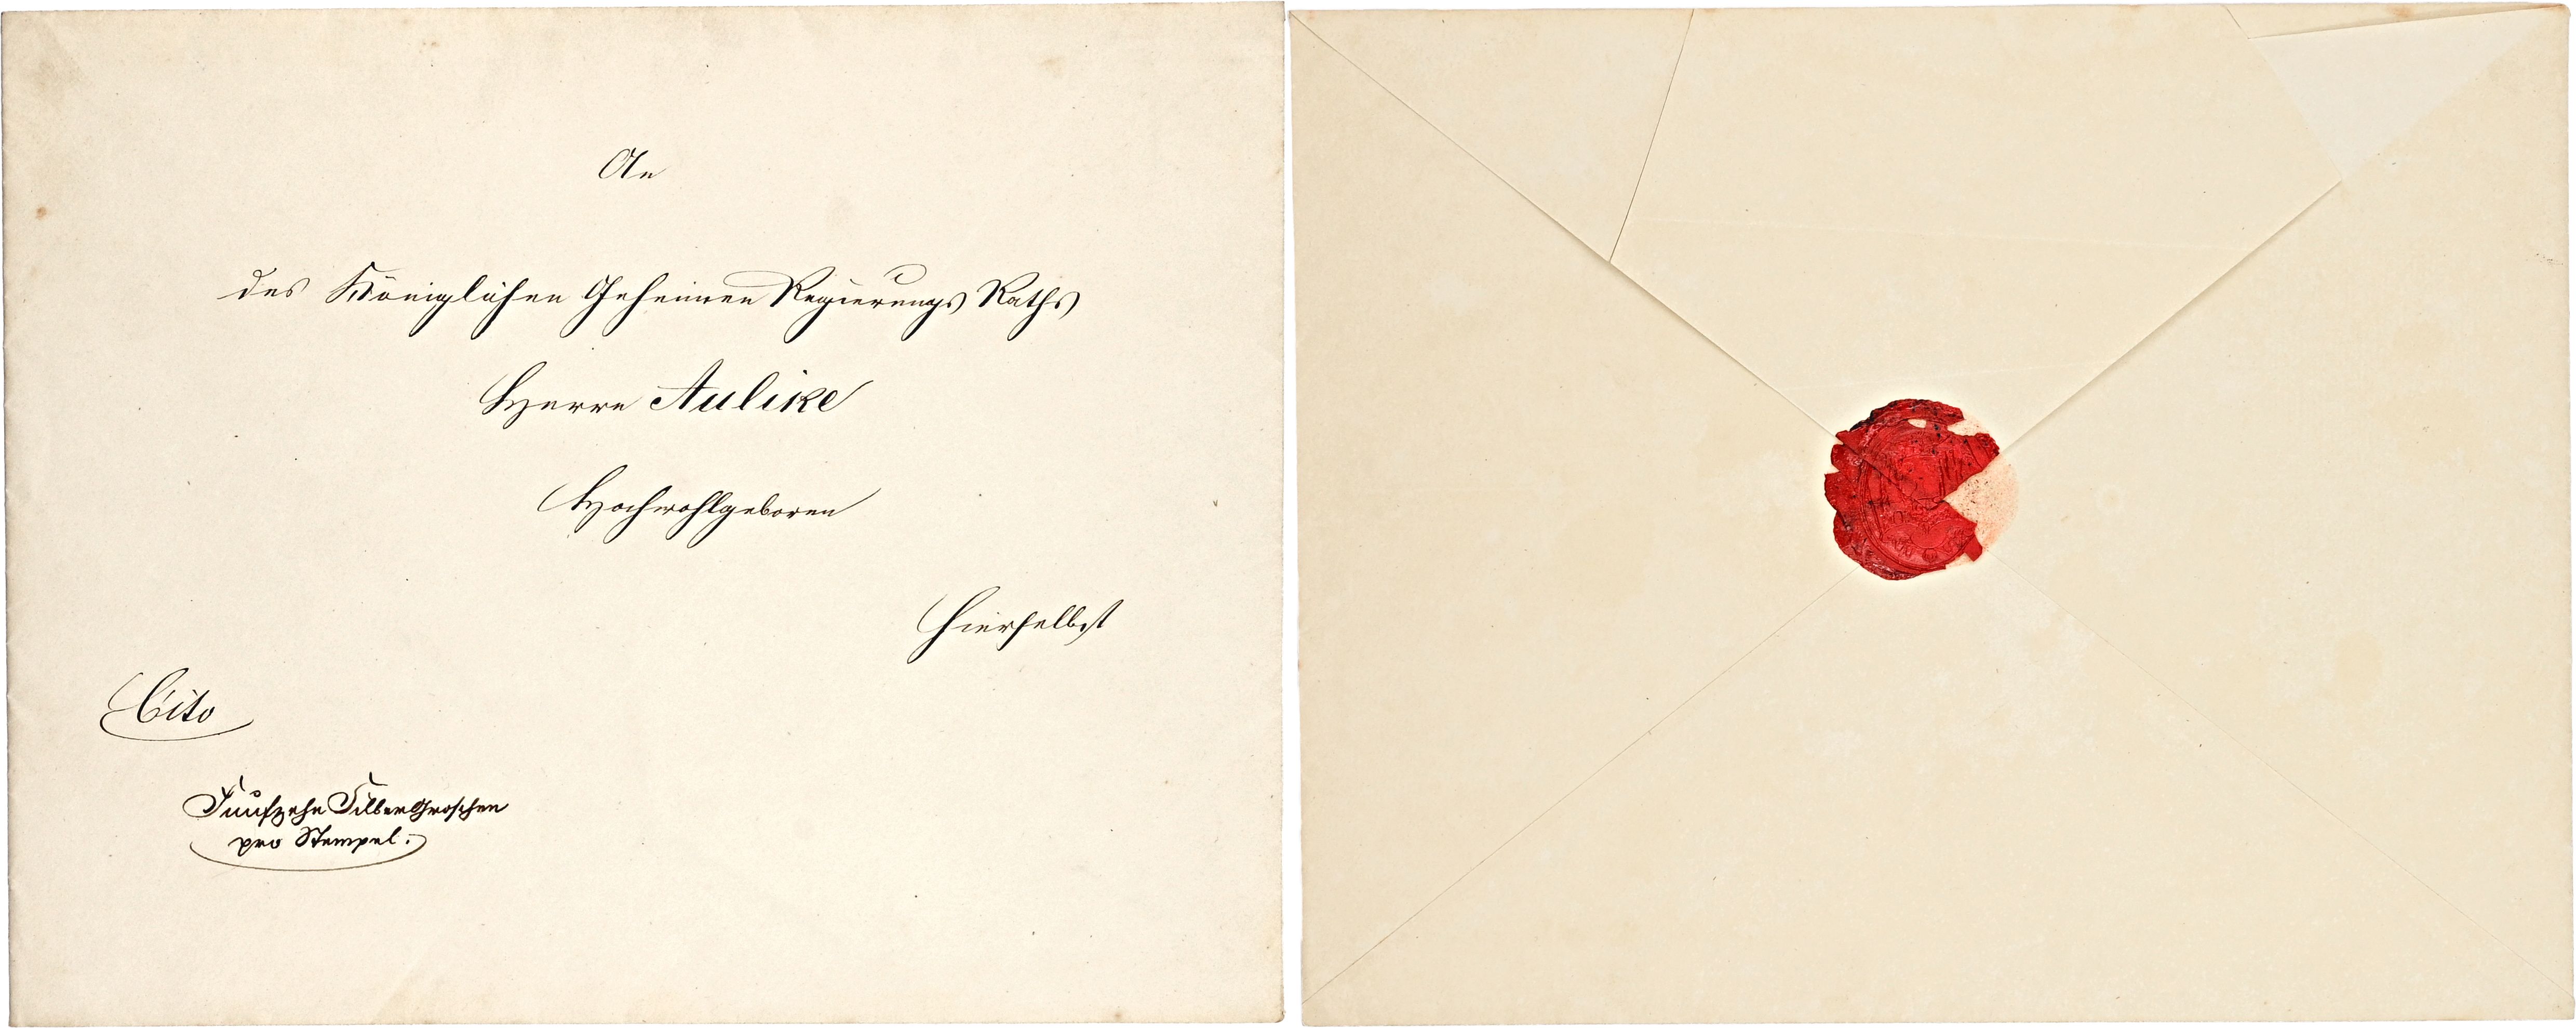 An
des Königlichen Geheimen Regierungs Raths
Herrn Aulike
Hochwohlgeboren
hierselbst
Cito
Fünfzehn SilberGroschen
pro Stempel.